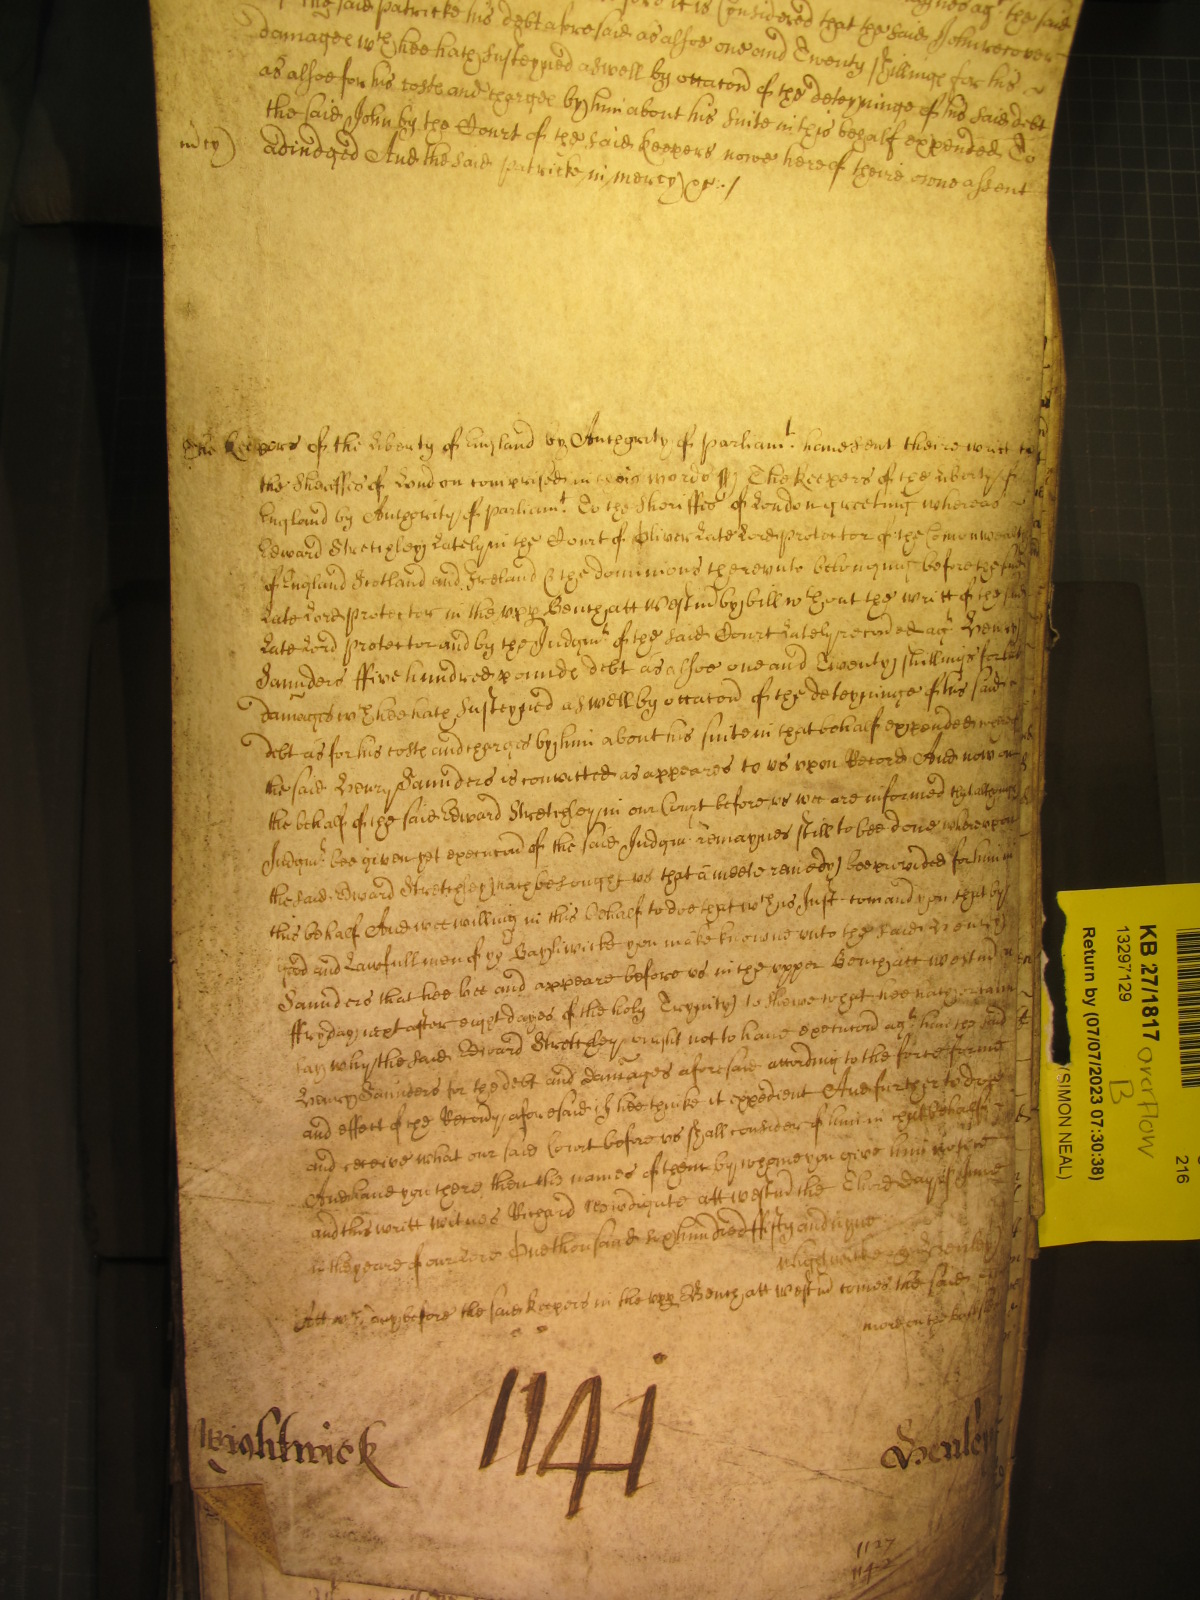 the said Patricke his debt aforesaid as alsoe one and Twenty shillings for his
damages wch hee hath susteyned aswell by occacon of the deteyninge of his said debt
as alsoe for his costs and charges by him about his suite in this behalf expended To
the said John by the Court of the said Keepers nowe here of theire owne assent
mcy) adiudged And the said Patricke in mercy &c./
The Keepers of the Liberty of England by Authority of Parliamt. have sent theire writt to
the Sheriffes of London comprised in theis words ss) The Keepers of the Liberty of
England by Authority of Parliamt. To the Sheriffes of London greeting whereas
Edward Stretchley Lately in the Court of Oliver Late Lord Protector of the Comonwealth
of England Scotland and Ireland & the dominions thereunto belonging before the said
Late Lord Protector in the upp Bench att Westm by bill wthout the writt of the said
Late Lord Protector and by the Judgmt. of the said Court Lately recoved agt. Henry
Saunders ffive hundred pounds debt as alsoe one and Twenty shillings for his
damages wch hee hath susteyned aswell by occacon of the deteyninge of his said
debt as for his costs and charges by him about his suite in that behalf expended whereof
the said Henry Saunders is convicted as appeares to us upon Record And now on
the behalf of the said Edward Stretchley in our Court before us wee are informed that although
Judgmt. bee given yet execucon of the said Judgmt. remaynes still to bee done whereupon
the said Edward Stretchley hath besought us that a meete remedy bee provided for him in
this behalf And wee willing in this behalf to doe that wch is Just comand you that by
good and Lawfull men of yor Bayliwicke you make knowne unto the said Henry
Saunders that hee bee and appeare before us in the upper Bench att Westm on
ffryday next after eight dayes of the holy Trynity to shewe what hee hath or can
say why the said Edward Stretchley ought not to have execucon agt. him the said
Henry Saunders for the debt and damages aforesaid according to the force forme
and effect of the Recovy aforesaid if hee thinke it expedient And further to doe
and receive what our said Court before us shall consider of him in that behalfe
And have you there then the names of them by whome you give him notice
and this writt witnes Richard Newdigate att Westm the Third day of June
in the yeare of our Lord One thousand six hundred ffifty and nyne
Wightwicke & Henley
Att wch day before the said Keepers in the upp Bench att Westm comes the said
more on the backside
Wightwick 1141 Henley
1127
1142
KB 27/1817 overflow B
13297129
216
Return by (07/07/2023 07:30:38)
(SIMON NEAL)